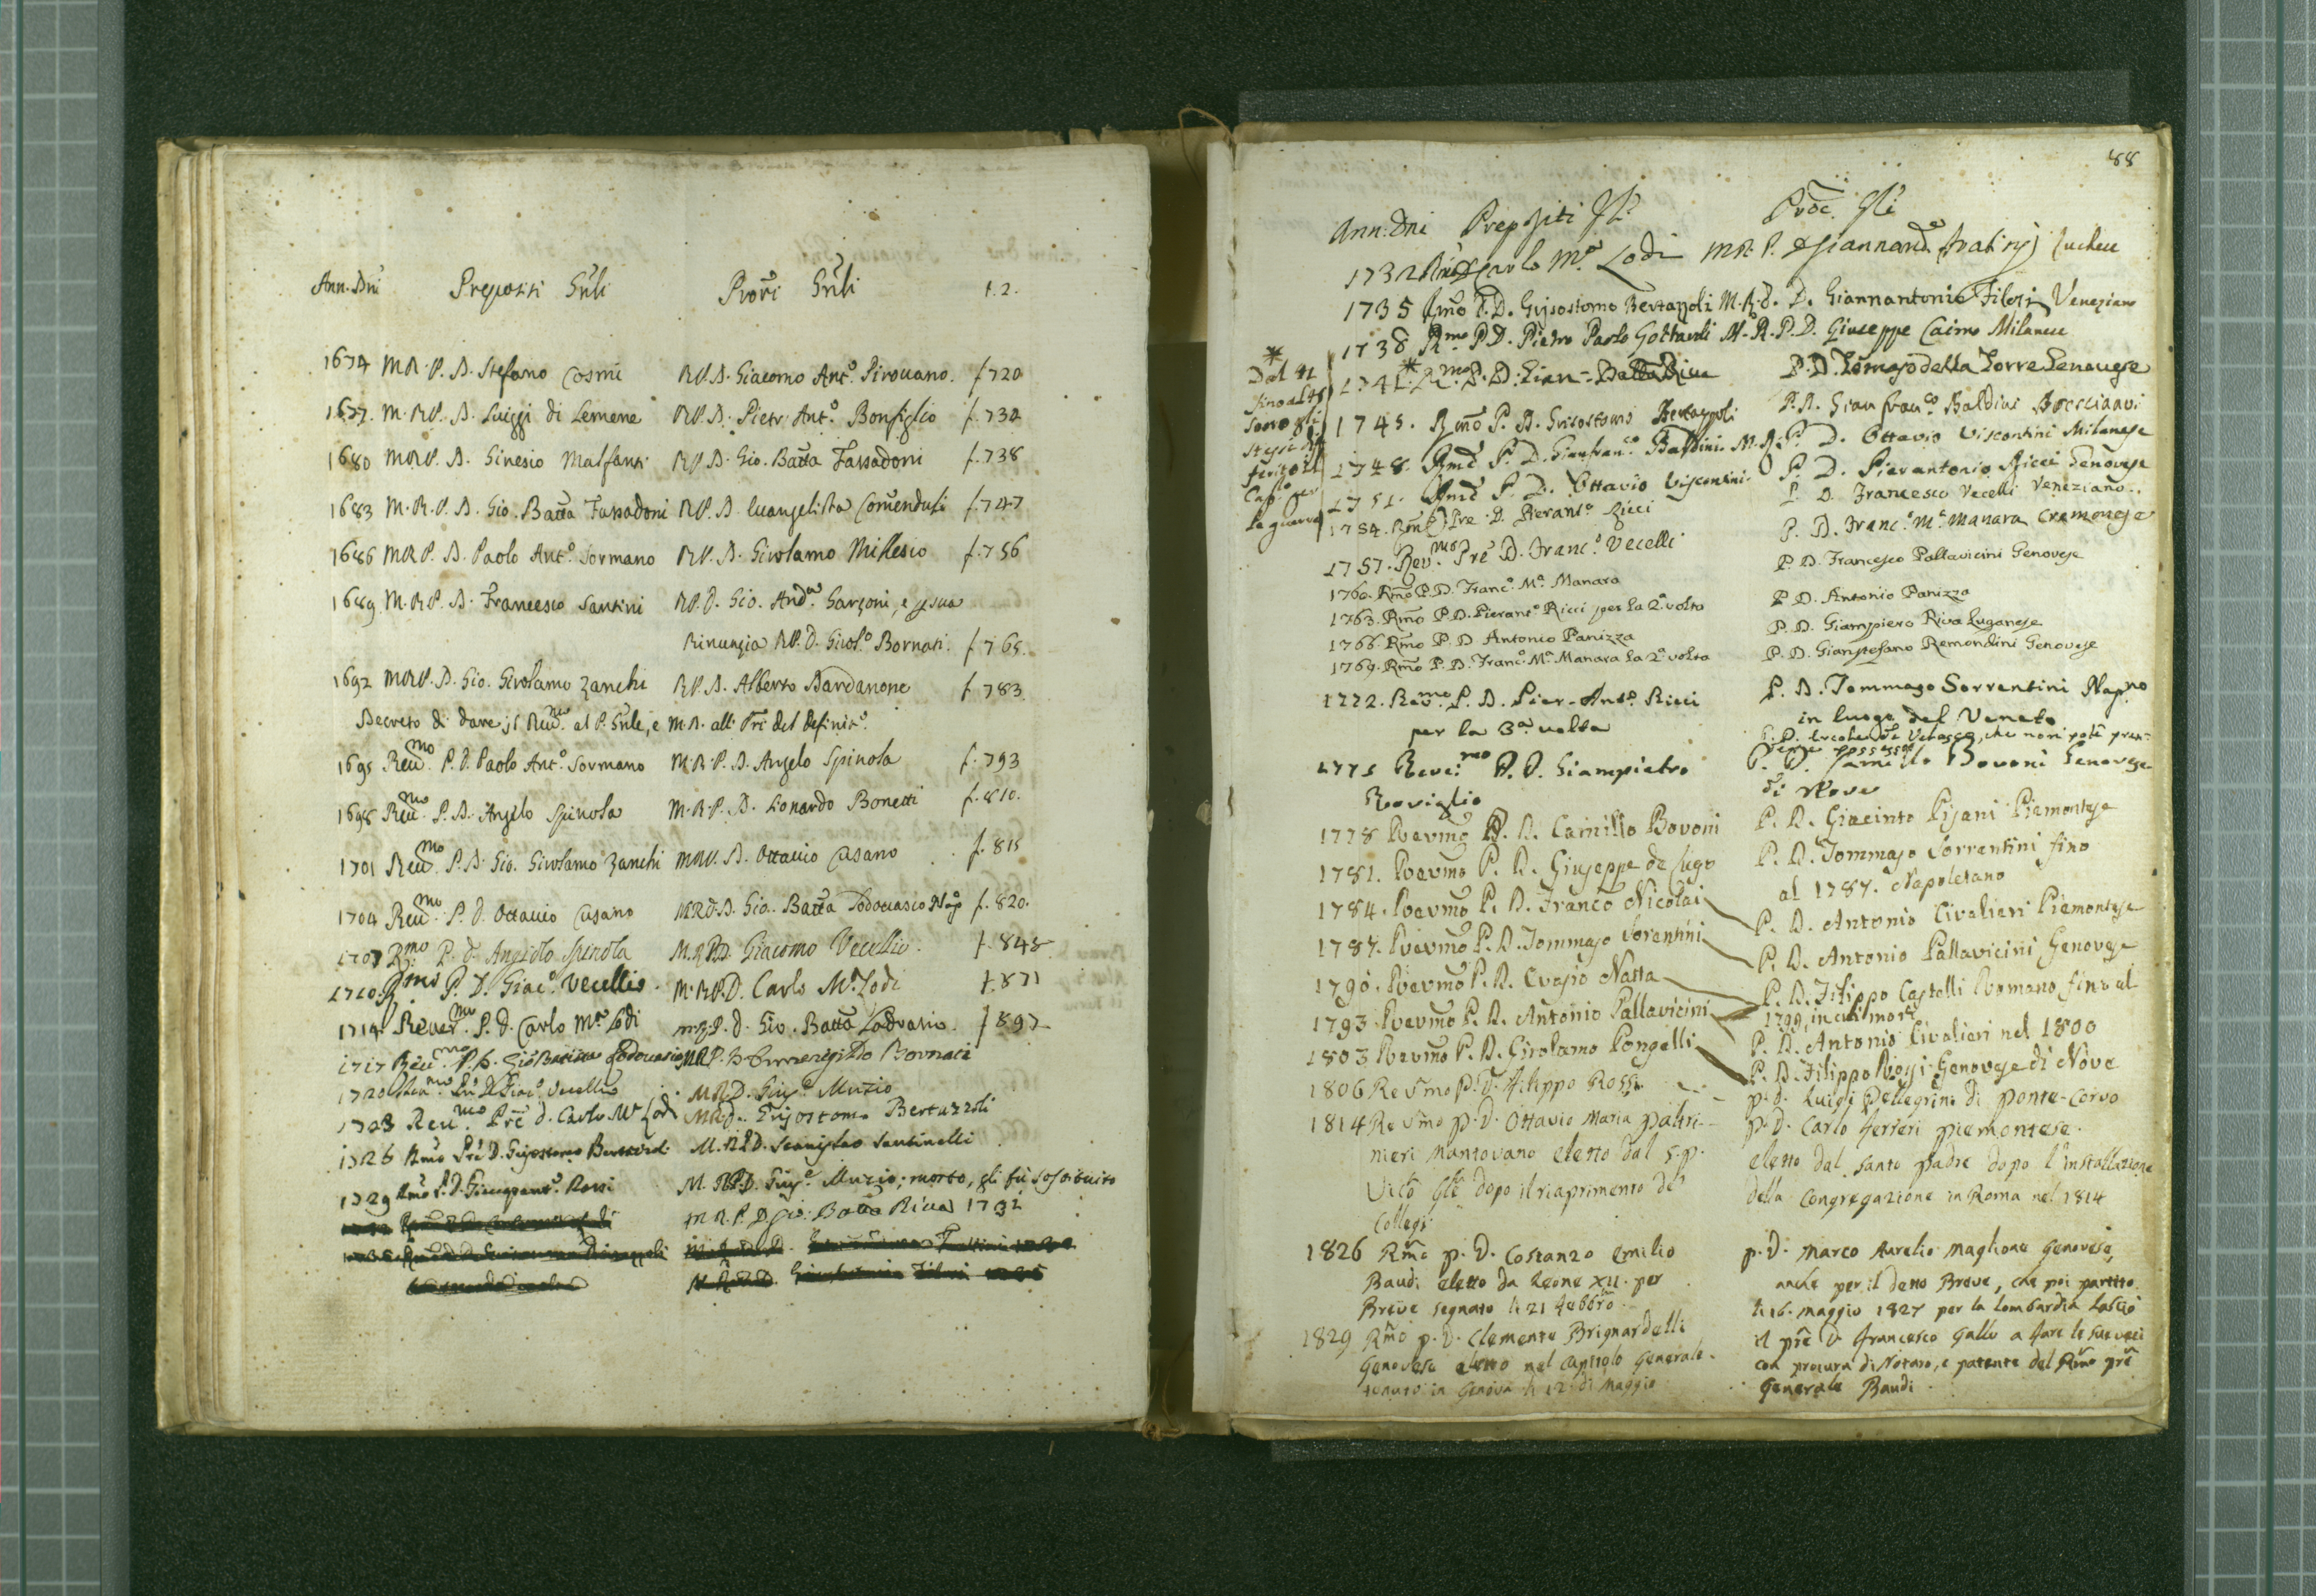 Ann. Dni Prepositi Gnli Procri Gnli f. 2.
1674 M.R.P. D. Stefano Cosmi R.P.D. Giacomo Ant.º Pirovano. f. 720
1677. M.R.P. D. Luiggi di Lemene R.P.D. Pietr' Ant.º Bonfiglio f. 732
1680 M.R.P. D. Ginesio Malfanti R.P.D. Gio. Batta Fassadoni f. 738
1683 M.R.P. D. Gio. Batta Fassadoni R.P.D. Evangelista Comenduli f. 747
1686 M.R.P. D. Paolo Ant.º Sormano R.P.D. Girolamo Millesio f. 756
1689. M.R.P. D. Francesco Santini R.P.D. Gio. And.ª Garzoni, e p sua
Rinunzia R.P.D. Girol.º Bornati. f. 765.
1692 M.R.P. D. Gio. Girolamo Zanchi R.P.D. Alberto Bardanone f. 783
Decreto di dare il Reu.mo al P. Gnle, e M.R. alli Pri del Definit.º
1695 Reu.mo P.D. Paolo Ant.º Sormano M.R.P. D. Angelo Spinola f. 793
1698 Reu.mo P.D. Angelo Spinola M.R.P. D. Lionardo Bonetti f. 810.
1701 Reu.mo P.D. Gio. Girolamo Zanchi M.R.P. D. Ottavio Cusano f. 815
1704 Reu.mo P.D. Ottavio Cusano M.R.P.D. Gio. Batta Lodovasio Nap f. 820.
1707 R.mo P.D. Angiolo Spinola M.R.P.D. Giacomo Vecellio. f. 845
1710. R.mo P.D. Giac.º Vecellio. M.R.P.D. Carlo M.ª Lodi f. 871
1714 Reuer.mo P.D. Carlo M.ª Lodi M.R.P.D. Gio. Batta Lodovasio. f 897
1717 Reu.mo P.D. Gio Battista Lodovasio M.R.P.D. Ermenegildo Bornati
1720 Reu.mo Pre D. Giac.º Vecellio M.R.D. Gius.e Muzio
1723 Reu.mo Pre D. Carlo M.ª Lodi M.R.D. Grisostomo Bertazzoli
1726 Rmo Pre D. Grisostomo Bertazzoli M.R.P.D. Stanislao Santinelli
1729 Rmo P.D. Giampant.º Rossi M.R.P.D. Gius.e Muzio; morto, gli fù sostituito
M.R.P.D. Gio: Batta Riva 1731
88
Ann: Dni Prepositi Gli Proc. Gli
1732 Rmo D Carlo M.ª Lodi M.R.P. D Giannand.ª Fratini Lucchese
1735 Rmo P.D. Grisostomo Bertazzoli M.R.P. D. Giannantonio Filosi Veneziano
1738 R.mo P.D. Pietro Paolo Gottardi M.R.P.D. Giuseppe Caimo Milanese
* Dal 41
fino al 45
sono gli
stessi dif
ferito il
Cap.lo per
la guerra
1741. * R.mo P.D. Gian-Batta Riva P.D. Tomaso della Torre Genovese
1745. Rmo P.D. Grisostomo Bertazzoli P.D. Gianfran.co Baldini Bresciano
1748. Rmo P.D. Gianfran.co Baldini. M.R.P. D. Ottavio Viscontini Milanese
1751. Rmo P.D. Ottavio Viscontini. P.D. Pierantonio Ricci Genovese
1754. Rmo Pre D. Pierant.º Ricci P.D. Francesco Vecelli Veneziano.
1757. Rev.mo Pre D. Franc.º Vecelli P.D. Franc.º M.ª Manara Cremonese
1760. Rmo P.D. Franc.º M.ª Manara P.D. Francesco Pallavicini Genovese
1763. Rmo P.D. Pierant.º Ricci per la 2.ª volta P.D. Antonio Panizza
1766. Rmo P.D. Antonio Panizza P.D. Giampiero Riva Luganese
1769. Rmo P.D. Franc.º M.ª Manara la 2.ª volta P.D. Gianstefano Remondini Genovese
1772. Rev.mo P.D. Pier-Ant.º Ricci P.D. Tommaso Sorrentini Nap.no
per la 3.ª volta in luogo del Veneto
P.D. Ercole de Velasco, che non potè pren=
dere possesso
1775 Reve:mo P.D. Giampietro P.D. Camillo Bovoni Genovese
Roviglio di Nove
1778 Revmo P.D. Camillo Bovoni P.D. Giacinto Pisani Piemontese
1781. Revmo P.D. Giuseppe de Lugo P.D. Tommaso Sorrentini fino
al 1787. Napoletano
1784. Revmo P.D. Franco Nicolai P.D. Antonio Civalieri Piemontese
1787. Revmo P.D. Tommaso Sorentini P.D. Antonio Pallavicini Genovese
1790. Revmo P.D. Evasio Natta P.D. Filippo Castelli Romano fino al
1799, in cui morì
1793. Revmo P.D. Antonio Pallavicini P.D. Antonio Civalieri nel 1800
1803 Revmo P.D. Girolamo Pongelli P.D. Filippo Rossi Genovese di Nove
1806 Revmo P.D. Filippo Rossi p.D. Luigi Pellegrini di Ponte-Corvo
1814 Revmo p.D. Ottavio Maria Paltri- p.D. Carlo Ferreri piemontese.
nieri Mantovano eletto dal S.P. eletto dal Santo Padre dopo l'installazione
Vicº Gle dopo il riaprimento de' della Congregazione in Roma nel 1814
Collegi
1826 Rmo p.D. Costanzo Emilio p.D. Marco Aurelio Maglione Genovese,
Baudi eletto da Leone XII. per anche per il detto Breve, che poi partito
Breve segnato li 21 Febbro. li 16. Maggio 1827 per la Lombardia lasciò
1829 Rmo p.D. Clemente Brignardelli il pre D. Francesco Gallo a fare le sue veci
Genovese eletto nel Capitolo Generale con procura di Notaro, e patente del Rmo pre
tenuto in Genova li 12 di Maggio Generale Baudi.